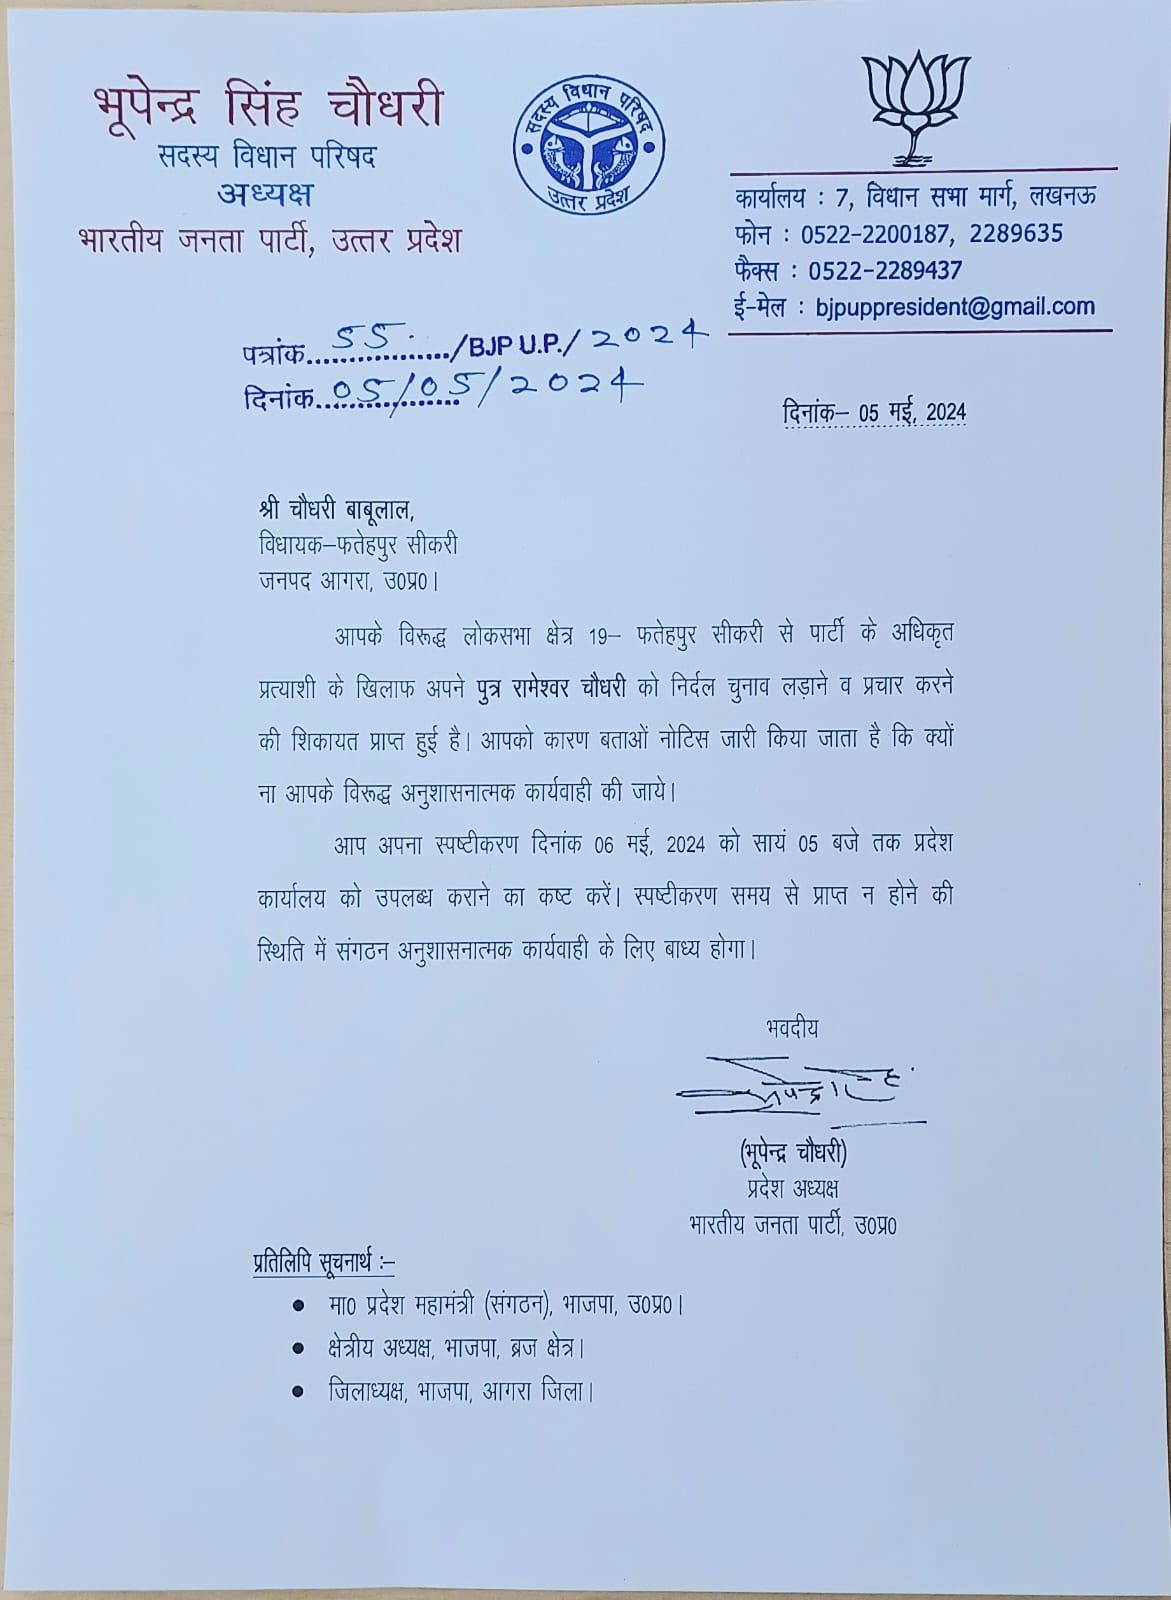 भूपेन्द्र सिंह चौधरी
सदस्य विधान परिषद
अध्यक्ष
भारतीय जनता पार्टी, उत्तर प्रदेश
सदस्य विधान परिषद
उत्तर प्रदेश
कार्यालय : 7, विधान सभा मार्ग, लखनऊ
फोन : 0522-2200187, 2289635
फैक्स : 0522-2289437
ई-मेल : bjpuppresident@gmail.com
पत्रांक 55. /BJP U.P./ 2024
दिनांक 05/05/2024
दिनांक– 05 मई, 2024
श्री चौधरी बाबूलाल,
विधायक–फतेहपुर सीकरी
जनपद आगरा, उ0प्र0।
आपके विरूद्ध लोकसभा क्षेत्र 19– फतेहपुर सीकरी से पार्टी के अधिकृत
प्रत्याशी के खिलाफ अपने पुत्र रामेश्वर चौधरी को निर्दल चुनाव लड़ाने व प्रचार करने
की शिकायत प्राप्त हुई है। आपको कारण बताओं नोटिस जारी किया जाता है कि क्यों
ना आपके विरूद्ध अनुशासनात्मक कार्यवाही की जाये।
आप अपना स्पष्टीकरण दिनांक 06 मई, 2024 को सायं 05 बजे तक प्रदेश
कार्यालय को उपलब्ध कराने का कष्ट करें। स्पष्टीकरण समय से प्राप्त न होने की
स्थिति में संगठन अनुशासनात्मक कार्यवाही के लिए बाध्य होगा।
भवदीय
(भूपेन्द्र चौधरी)
प्रदेश अध्यक्ष
भारतीय जनता पार्टी, उ0प्र0
प्रतिलिपि सूचनार्थ :–
• मा0 प्रदेश महामंत्री (संगठन), भाजपा, उ0प्र0।
• क्षेत्रीय अध्यक्ष, भाजपा, ब्रज क्षेत्र।
• जिलाध्यक्ष, भाजपा, आगरा जिला।